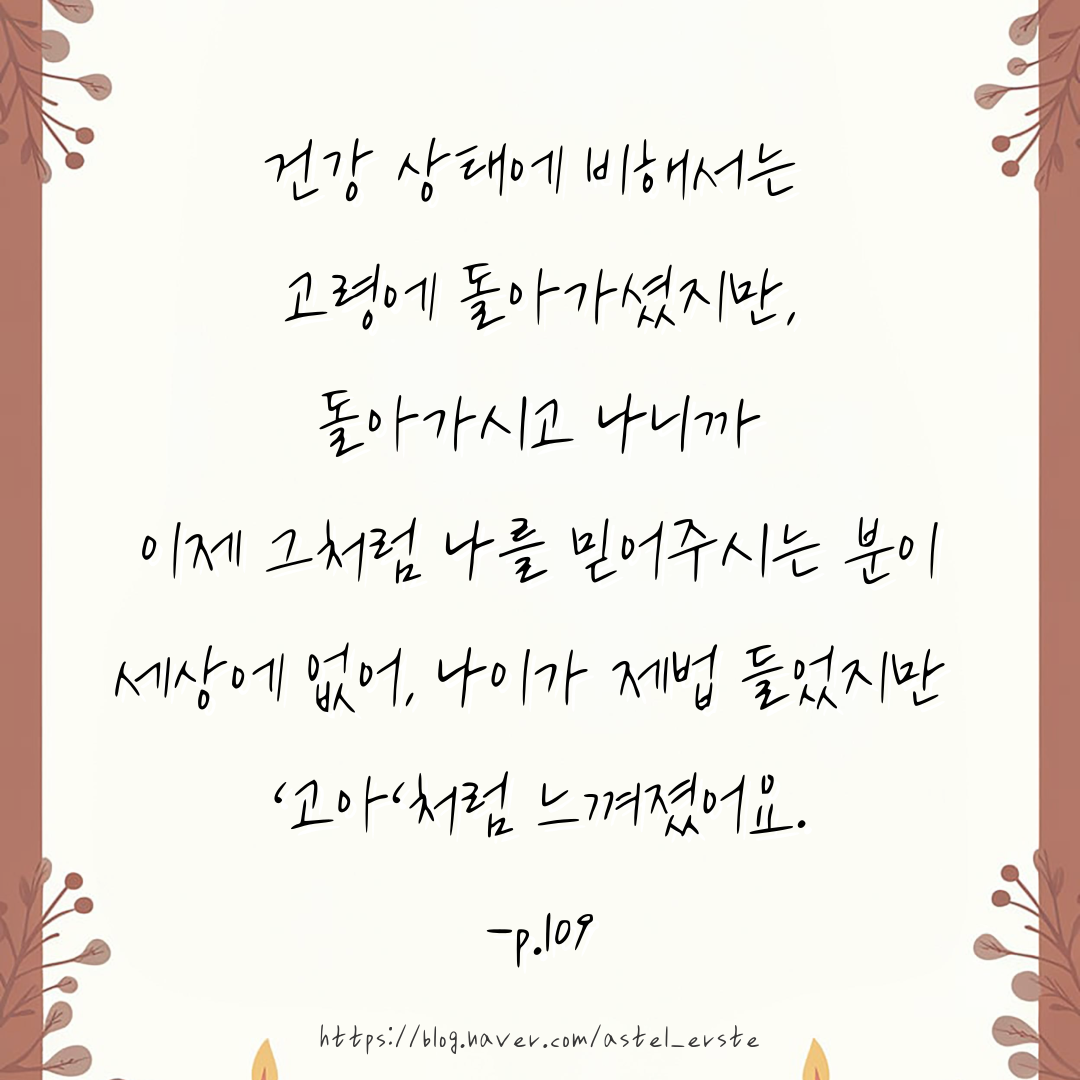 건강 상태에 비해서는
고령에 돌아가셨지만,
돌아가시고 나니까
이제 그처럼 나를 믿어주시는 분이
세상에 없어, 나이가 제법 들었지만
‘고아‘처럼 느껴졌어요.
-p.109
https://blog.naver.com/astel_erste